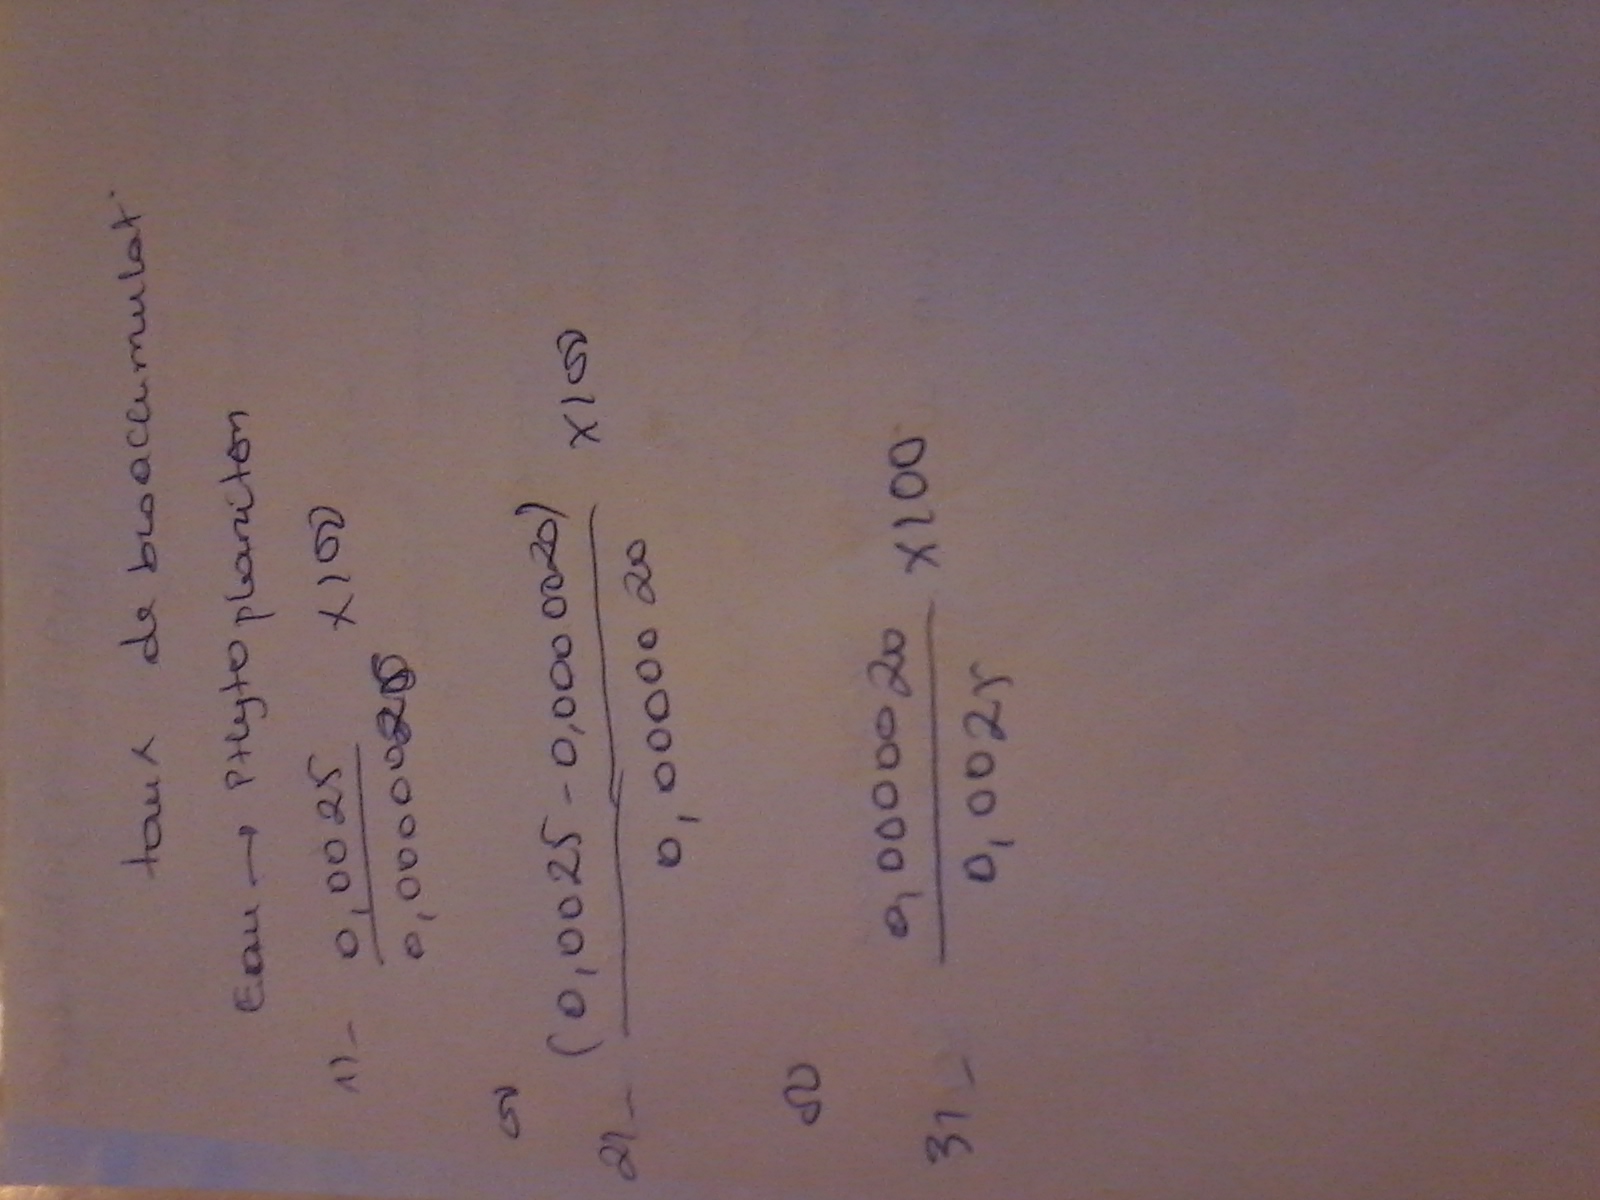 taux de bioaccumulat°
Eau → PHytoplancton
1)- 0,0025 x100
0,00000020
ou
2)- (0,0025-0,0000020) x100
0,0000020
ou
3)- 0,0000020 x100
0,0025